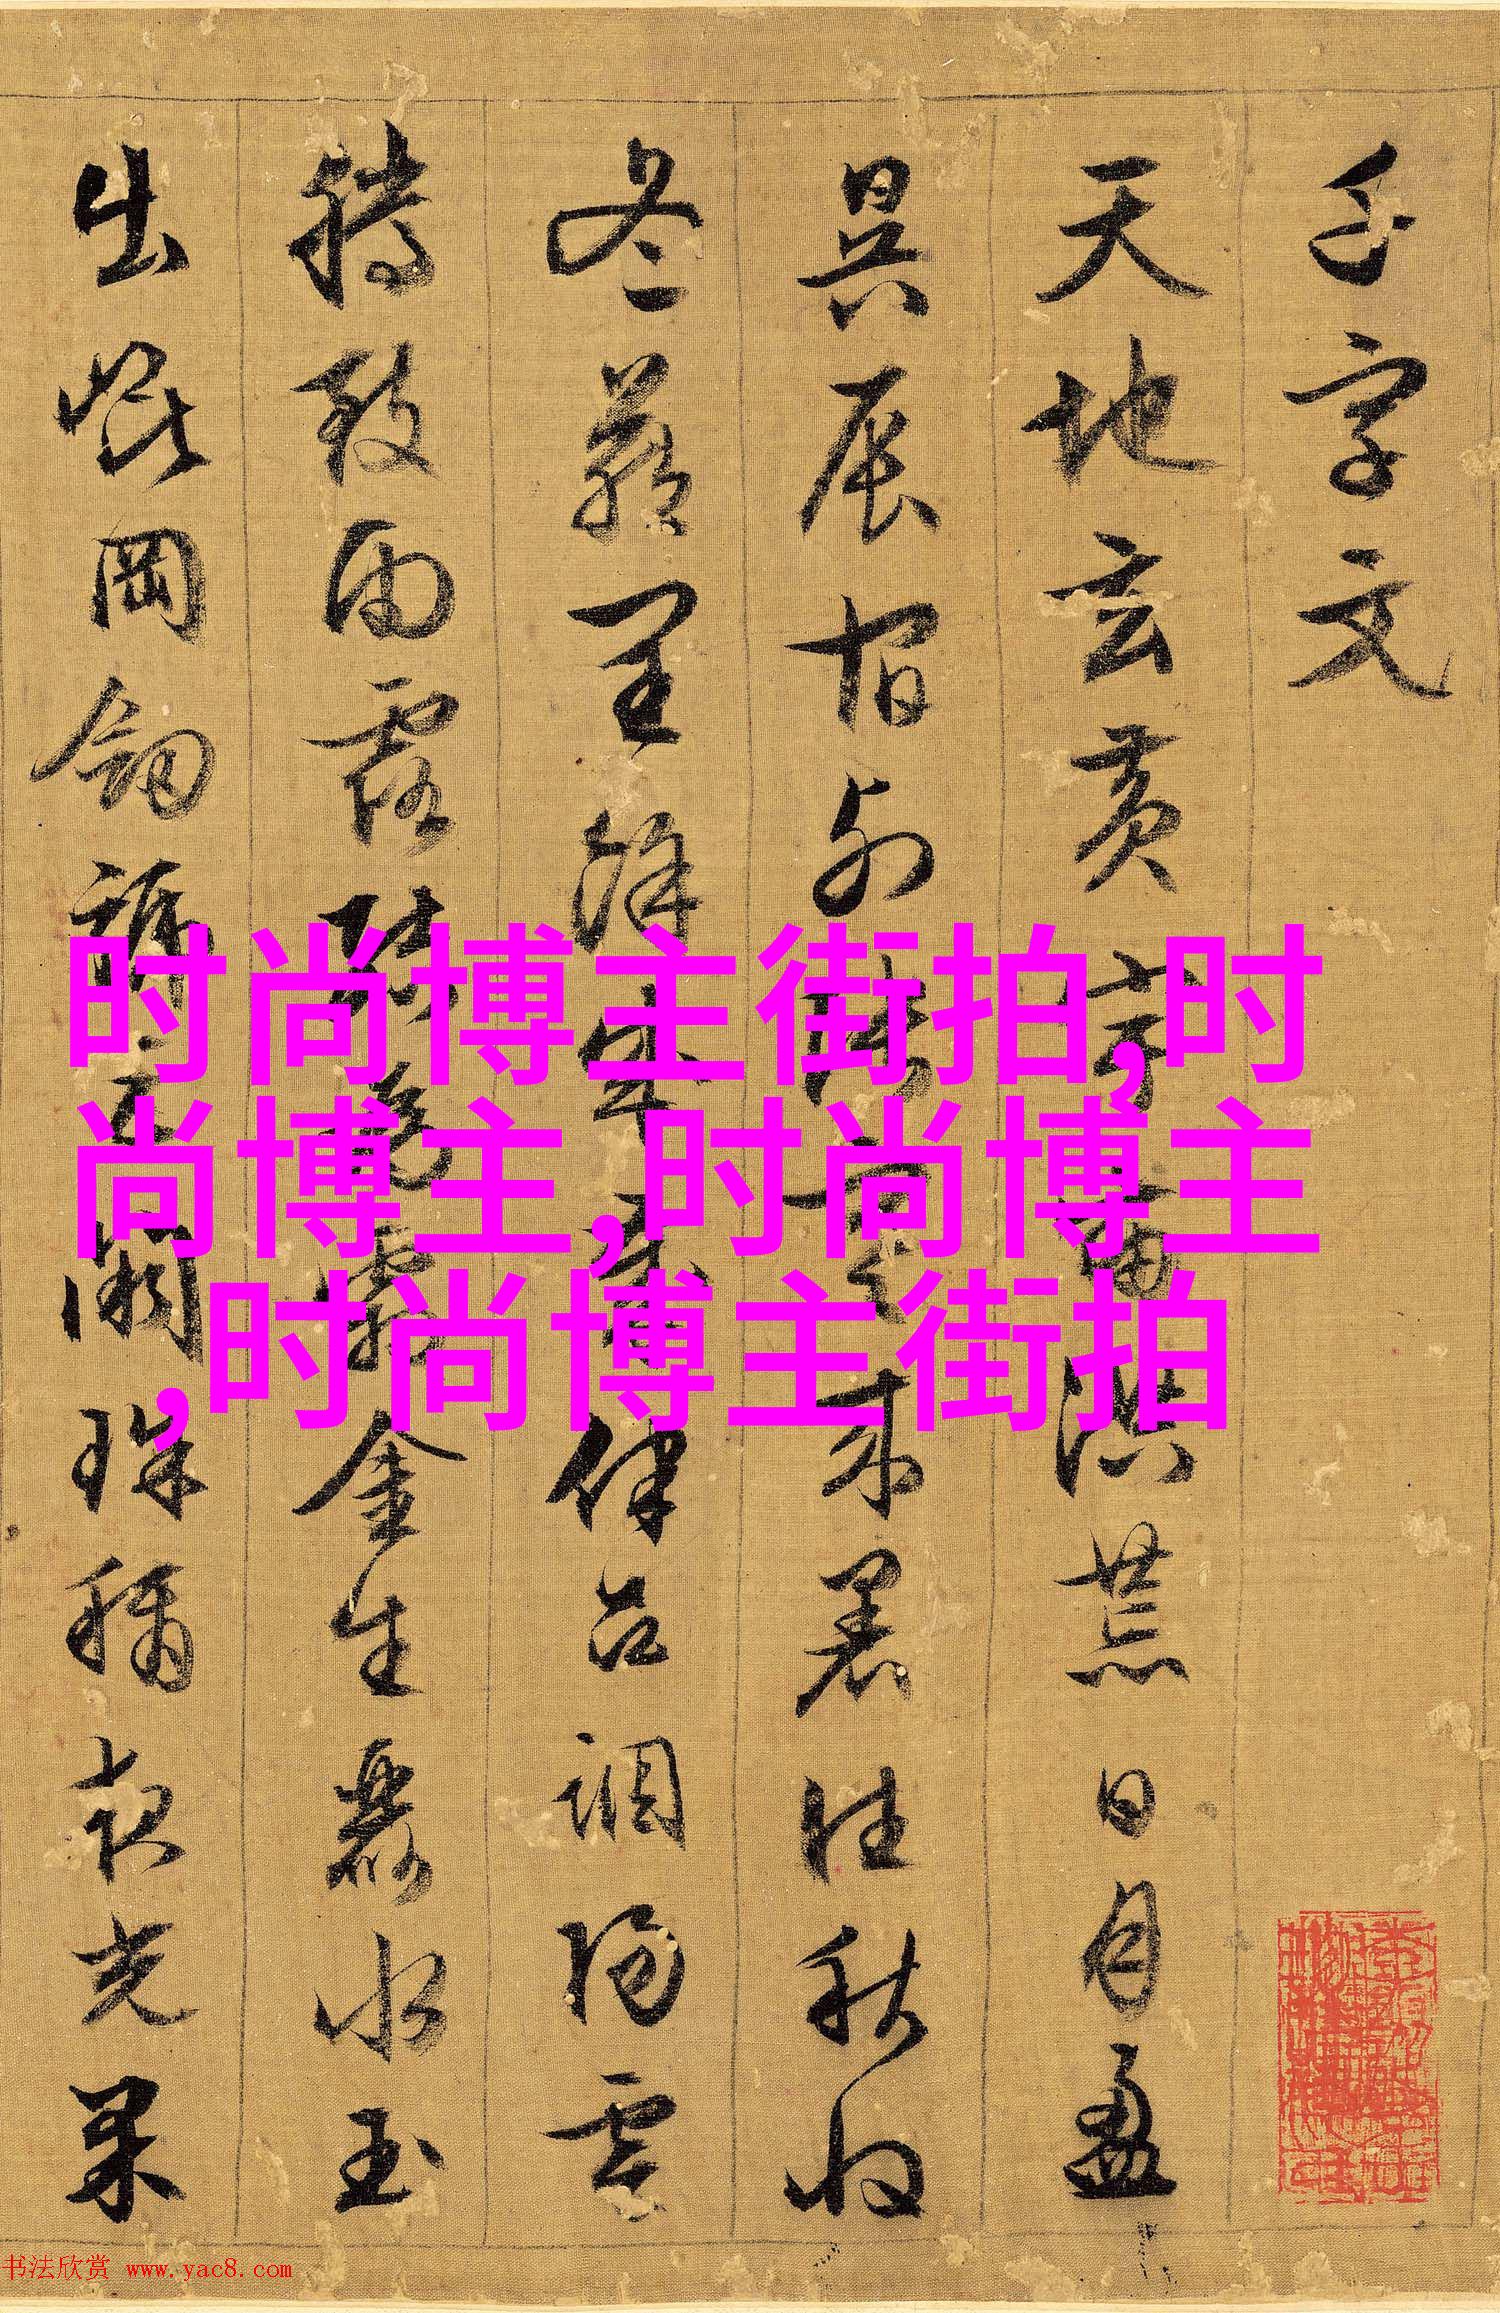 千字文
天地玄黄宇宙洪荒日月盈
昃辰宿列張寒来暑往秋收
冬藏閏餘成歲律吕調陽雲
騰致雨露結為霜金生麗水玉
出崐岡劍號巨闕珠稱夜光果
时尚博主街拍,时
尚博主,时尚博主
,时尚博主街拍
书法欣赏 www.yac8.com